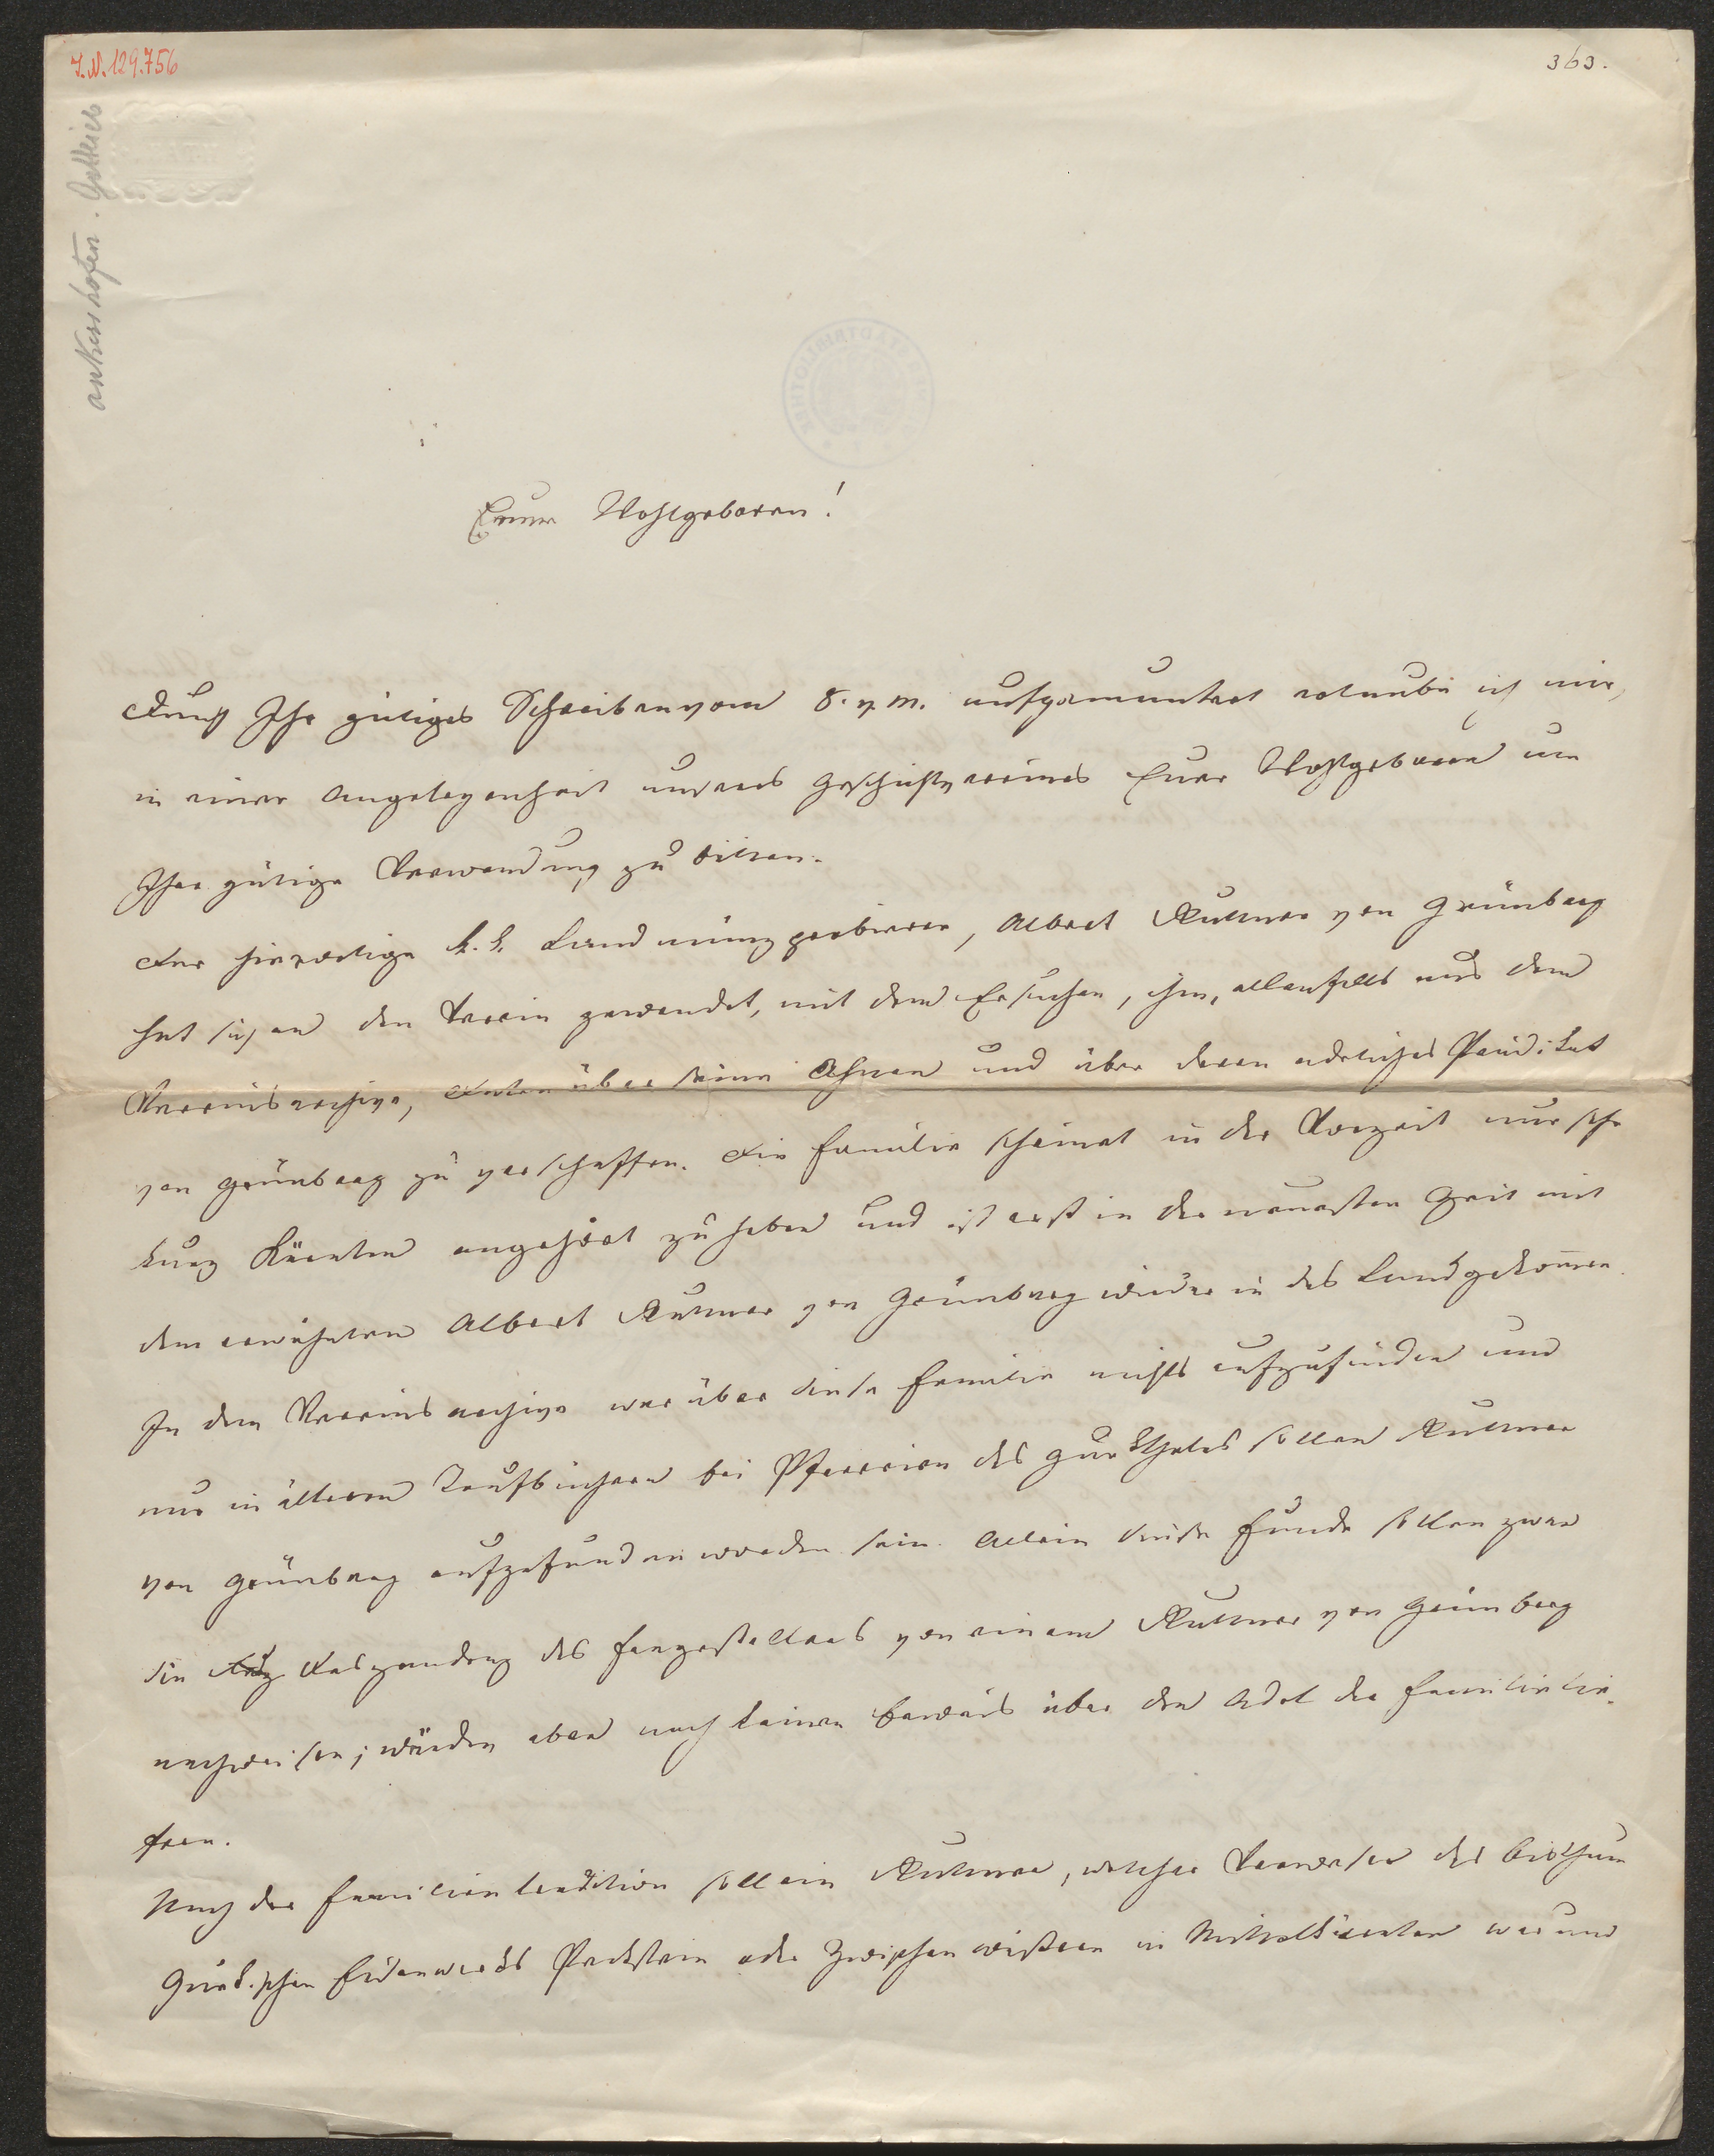 I.N. 129.756
363.
Ankershofen. Gottlieb
Euer Wohlgeboren!
Durch Ihr gütiges Schreiben vom 8. v. M. aufgemuntert erlaube ich mir,
in einer Angelegenheit unseres Geschichtsvereines Euer Wohlgeboren um
Ihre gütige Verwendung zu bitten.
Der hierortige k. k. Landmünzprobierer, Albert Ruttner von Grünberg
hat sich an den Verein gewendet, mit dem Ersuchen, ihm, allenfalls aus dem
Vereinsarchive, Daten über seine Ahnen und über deren adeliches Prädikat
von Grünberg zu verschaffen. Die Familie scheint in der Vorzeit nur sehr
kurz Kärnten angehört zu haben und ist erst in der neuesten Zeit mit
dem erwähnten Albert Ruttner von Grünberg wieder in das Land gekommen.
In dem Vereinsarchive war über diese Familie nichts aufzufinden und
nur in älteren Taufbüchern bei Pfarreien des Gurkthales sollen Ruttner
von Grünberg aufgefunden worden sein. Allein diese Funde sollen zwar
die Descendenz des Fragestellers von einem Ruttner von Grünberg
nachweisen; würden aber noch keinen Beweis über den Adel der Familie lie-
fern.
Nach der Familientradition soll ein Ruttner, welcher Verweser des bisthum
Gurk'schen Eisenwerks in Mittelkärnten war und